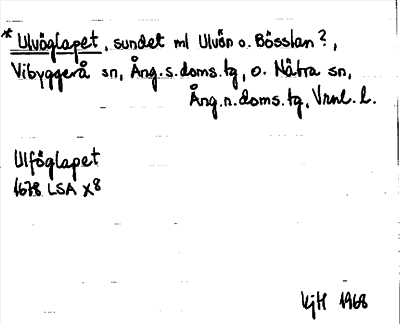 * Ulvöglapet, sundet ml Ulvön o. Bösslan?,
Vibyggerå sn, Ång.s.doms.tg, o. Nätra sn,
Ång.n.doms.tg, Vrnl. l.
Ulföglapet
1678 LSA X8
KjH 1968